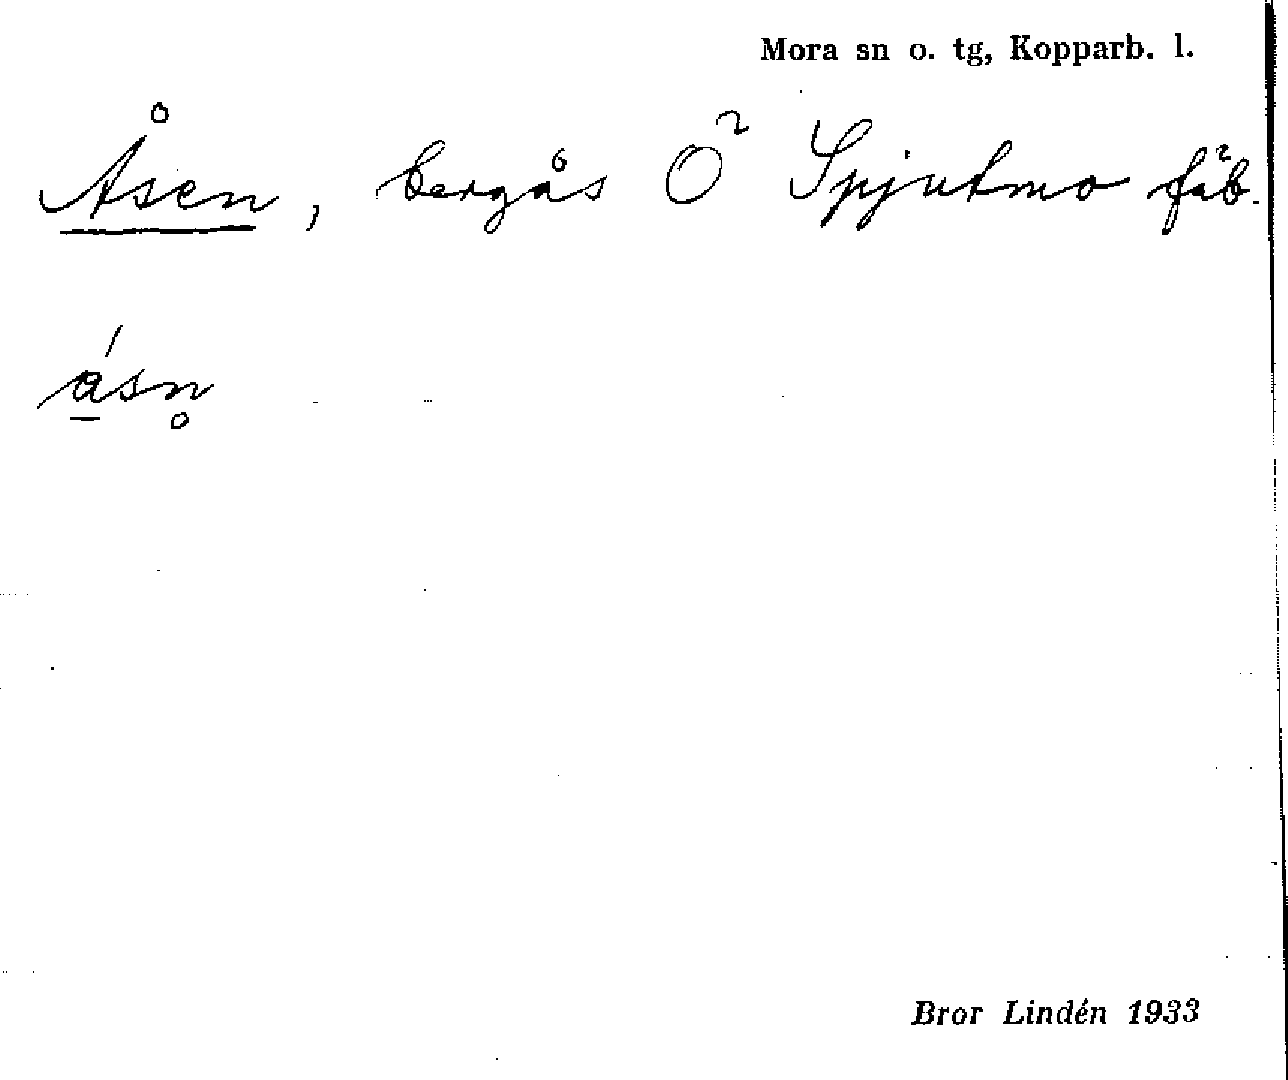 Mora sn o. tg, Kopparb. l.
Åsen, bergås Ö Spjutmo fäb.
á̲sn̥
Bror Lindén 1933